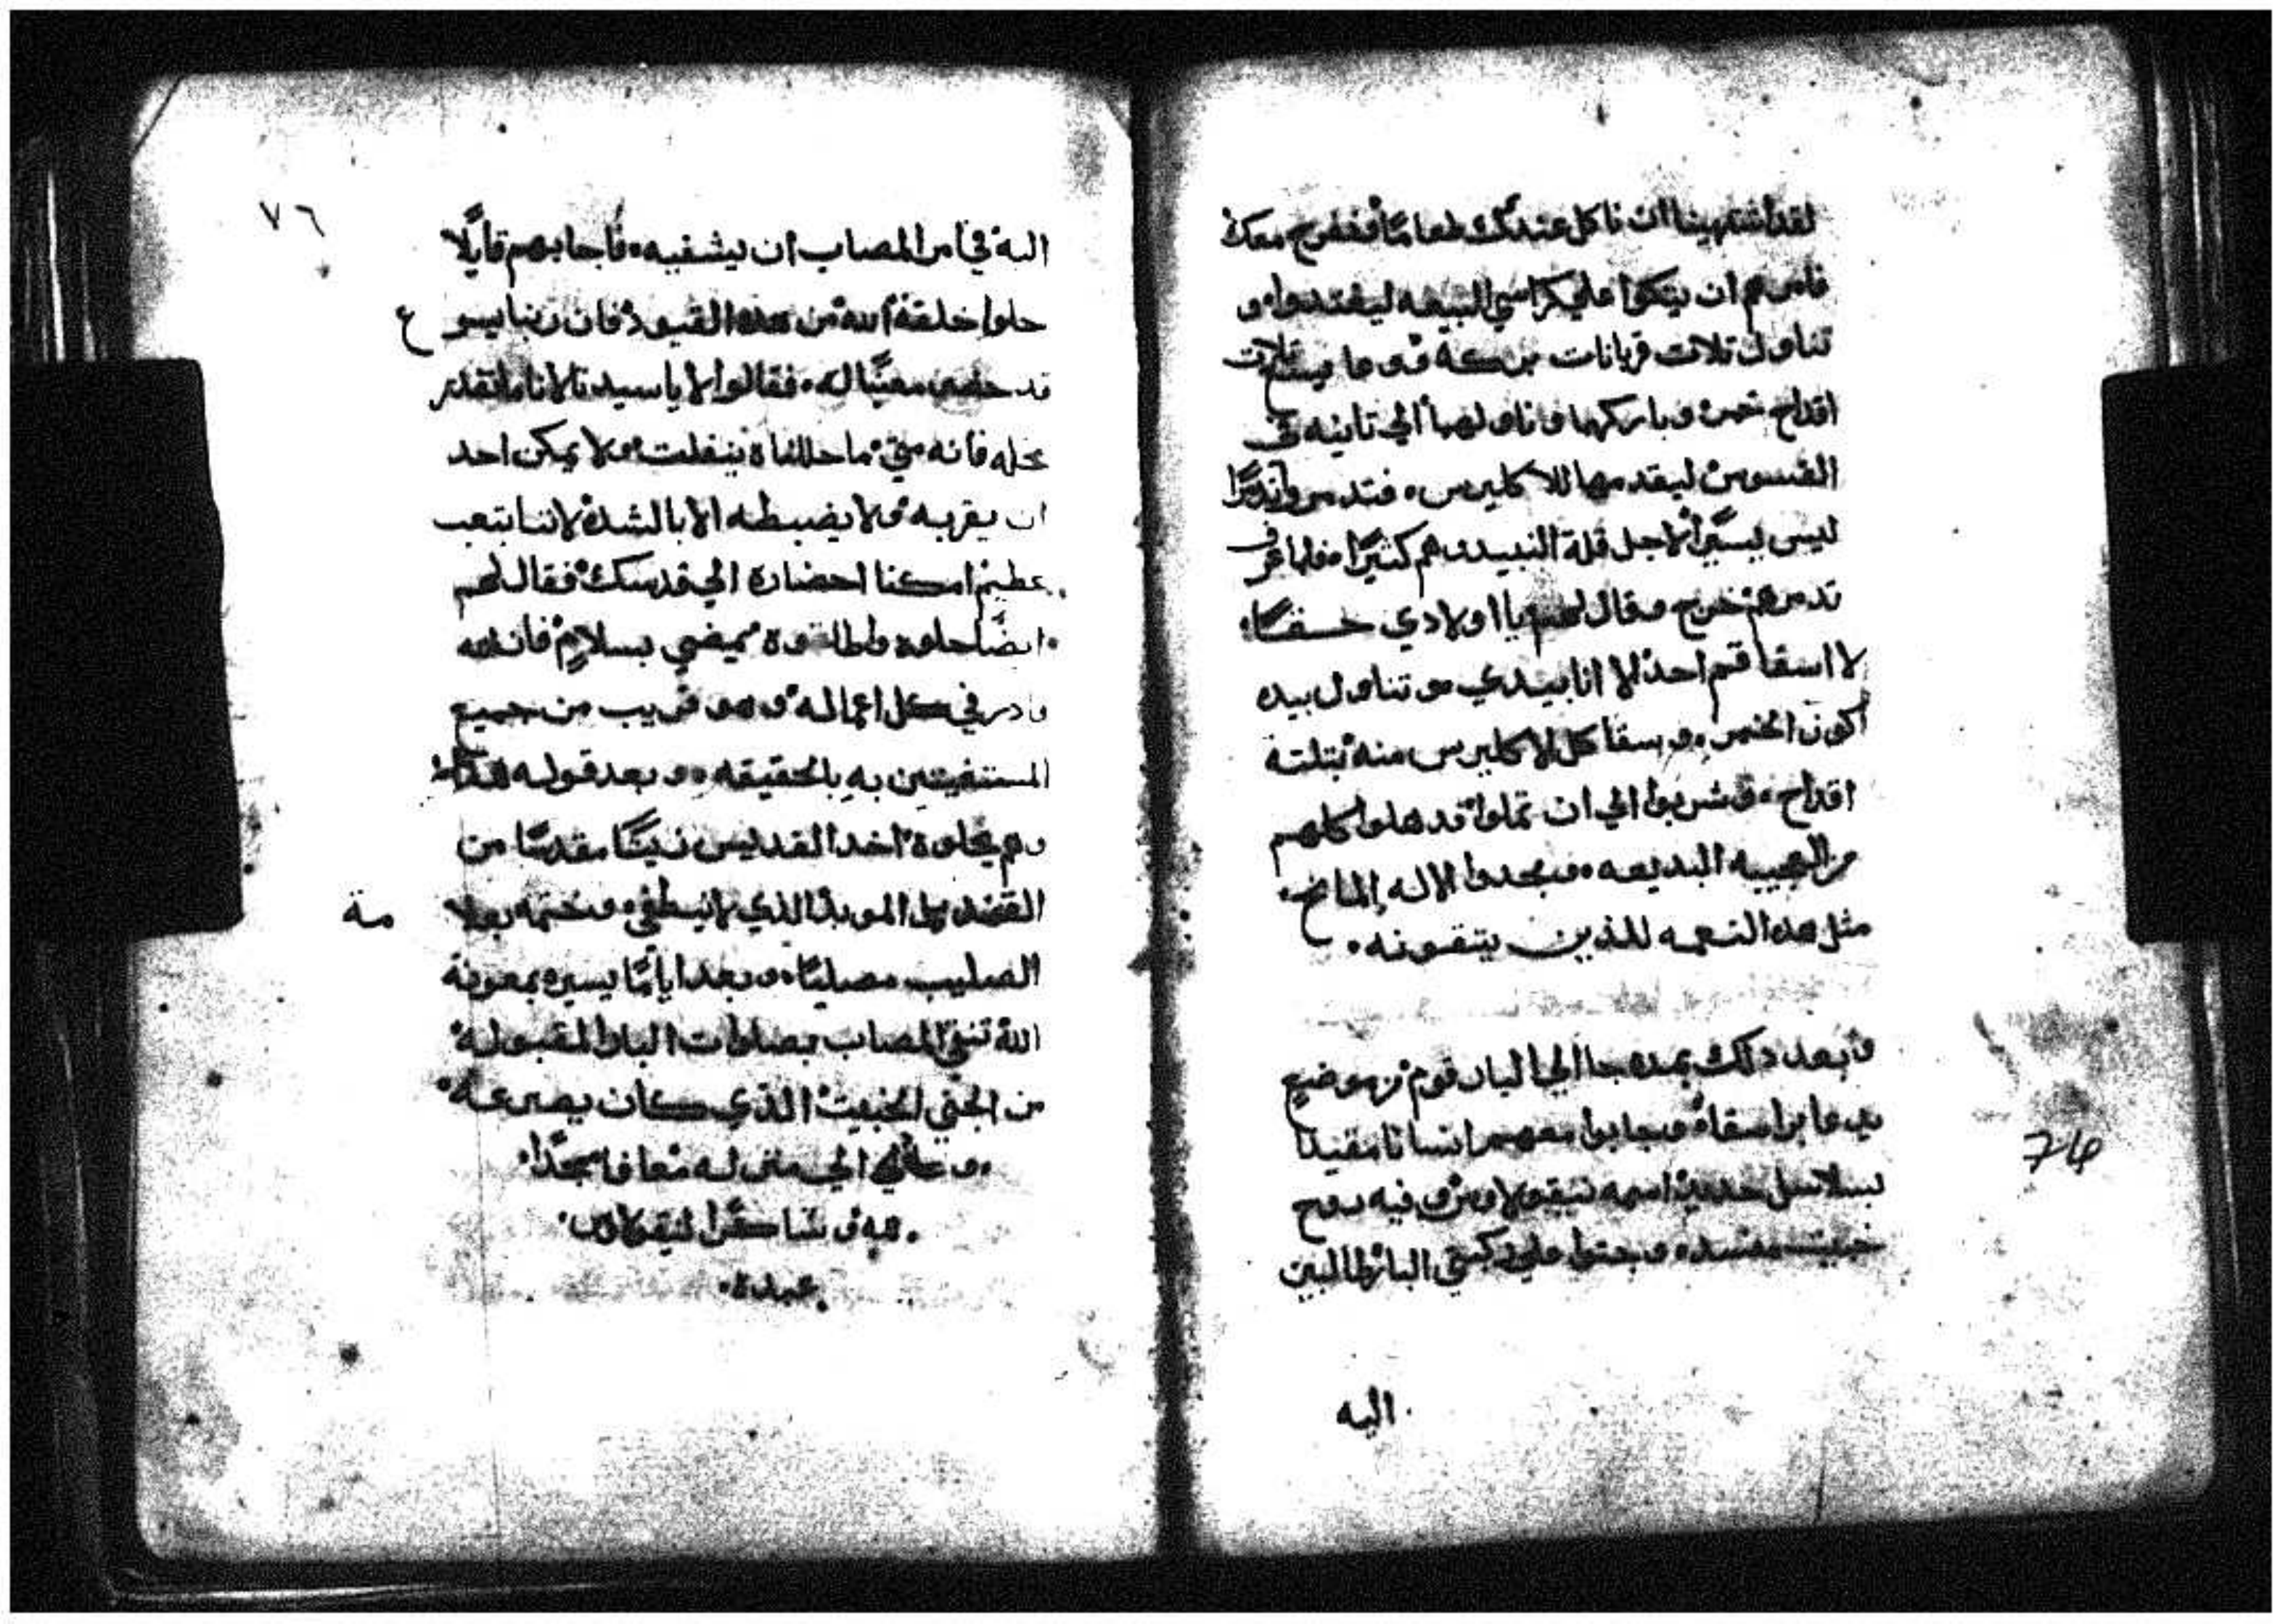 لقد اشتهينا ان ناكل عندك طعامًا فنفرح معك
فامرهم ان يتكوا علي كراسي البيعه ليفتدوا و
تناول تلات قربانات بركة وايضا تلات
اقداح خمر وباركها وناولها الي تانيه في
القسوس ليقدمها للاكليرس فتدمروا تدمرًا
ليس يسيرًا لاجل قلة النبيد وهم كثيرًا فلما عرف
تدمرهم خرج وقال لهم يا اولادي حقًا
لا اسقاقتم احد الا انا بيدي و تناول بيده
اكون الخمر و سقا كل الاكليرس منه بتلتة
اقداح وشربوا الي ان تملوا قدهلوا كلهم
من العجيبه البديعه ومجدوا الاله المانح
مثل هده النعمه للذين يتقونه
وبعد دلك بمده جا الي البار قوم من موضع
يدعا براسقاه وجابوا معهم انسانا مقيدا
بسلاسل حديد اسمه نيقولاوس وفيه روح
خبيث مفسده وجتوا علي ركبتي البار طالبين
اليه
74
٧٦
اليه في امر المصاب ان يشفيه فاجابهم قايلًا
حلوا خلقة الله من هده القيود فان ربنا يسوع
قد حضر معينًا له فقالوا لا يا سيدنا لانا ما نقدر
نحله فانه متي ما حللناه ينفلت ولا يمكن احد
ان يقربه ولا يضبطه الا بالشدة لاننا بتعب
عظيم امكنا احضاره الي قدسك فقال لهم
ايضًا حلوه واطلقوه يمضي بسلامٍ فان الله
قادر في كل اعماله وهو قريب من جميع
المستغيتين به بالحقيقه و بعد قوله هدا
وهم يحلوه اخد القديس زيتًا مقدسًا من
القنديل الموبد الذي لا ينطفي وختمه بعلامة
الصليب مصليًا وبعد ايامًا يسيره بمعونة
الله تنقي المصاب بصلوات البار المقبوله
من الجني الخبيث الذي كان يصرعه
وعاد الي منزله معافا ممجدًا
الله و شاكرًا لنيقولاوس
عبده